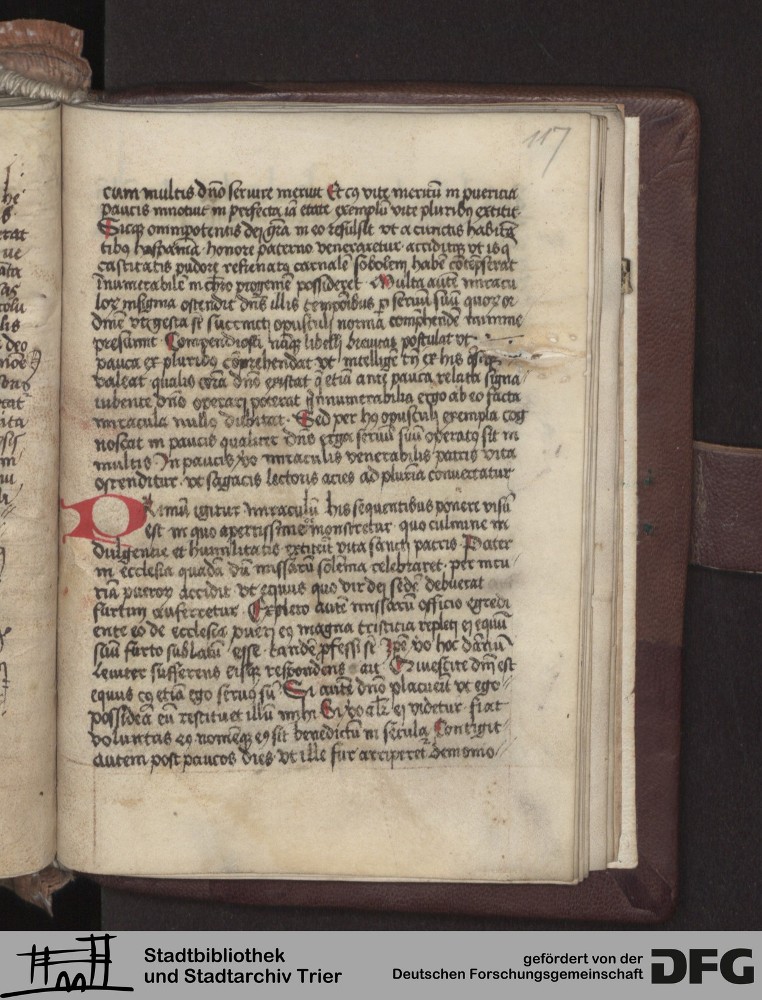 117
cum multis dño seruire meruit Et cꝰ vite meritū in puericia
paucis innotuit in perfecta iā etate exemplū vite pluribꝰ extitit
Sicqꝫ omnipotentis dei grā in eo refulsit vt a cunctis habitā
tibꝰ hispaniā honore paterno veneraretur accidit qꝫ vt is q
castitatis pudore refrenatꝰ carnale sobolem habē cōtēpserat
innumerabilē in chrō progeniē possideret Multa autē miracu
loꝝ insignia ostendit dñs illis temporibus p seruū suū quoꝝ or
dinē vt gesta st̄ succincti opusculi normā comphendē minime
presumit Compendiosi nāqꝫ libelli breuitas postulat vt
pauca ex pluribꝰ cōprehendat vt intellige tn̄ ex his
valeat qualis corā dño existat q etiā ante pauca relata signa
iubente dño operari poterat q innumerabilia ergo ab eo facta
miracula nullꝰ dubitat Sed per hꝰ opusculi exempla cog
noscat in paucis qualiter dñs erga seruū suū operatꝰ sit in
multis In paucis vo miraculis venerabilis patris vita
ostenditur vt sagacis lectoris acies ad pluria conuertatur
Primū igitur miraculū his sequentibus ponere visū
est in quo apertissime monstretur quo culmine in
dulgencie et humilitatis extiterit vita sancti patris Pater
in ecclesia quadā dū missarū solēnia celebraret per incu
riā pueroꝝ accidit vt equus quo vir dei sedē debuerat
furtim auferretur Expleto autē missarū officio egredi
ente eo de ecclesia pueri eꝰ magna tristicia repleti ei equū
suū furto sublatū esse tandē pfessi st̄ Ipe vo hoc dāmū
leuiter sufferens eisqꝫ respondens ait Quiescite dñi est
equus cꝰ etiā ego seruꝰ sū Si autē dño placuerit vt ego
possideā eū restituet illū mihi Si vo alr̄ ei videtur fiat
voluntas eꝰ nomēqꝫ eꝰ sit benedictū in secula Contigit
autem post paucos dies vt ille fur arriperet demonio
Stadtbibliothek
und Stadtarchiv Trier
gefördert von der
Deutschen Forschungsgemeinschaft
DFG